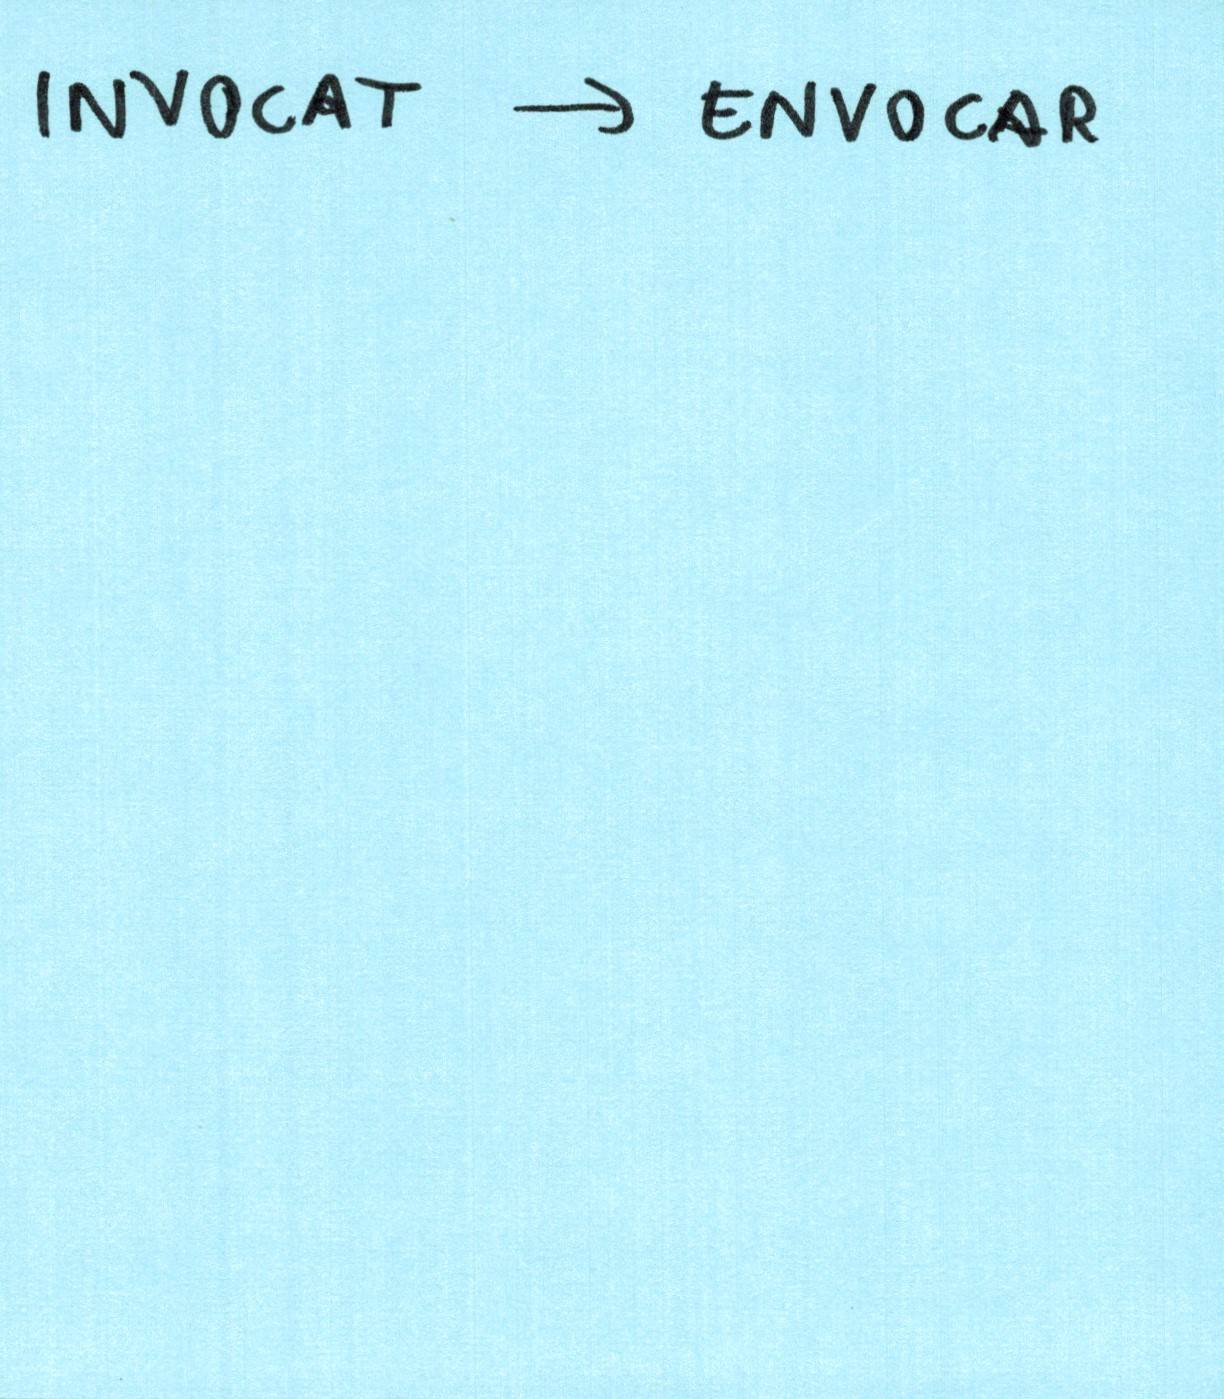 INVOCAT → ENVOCAR